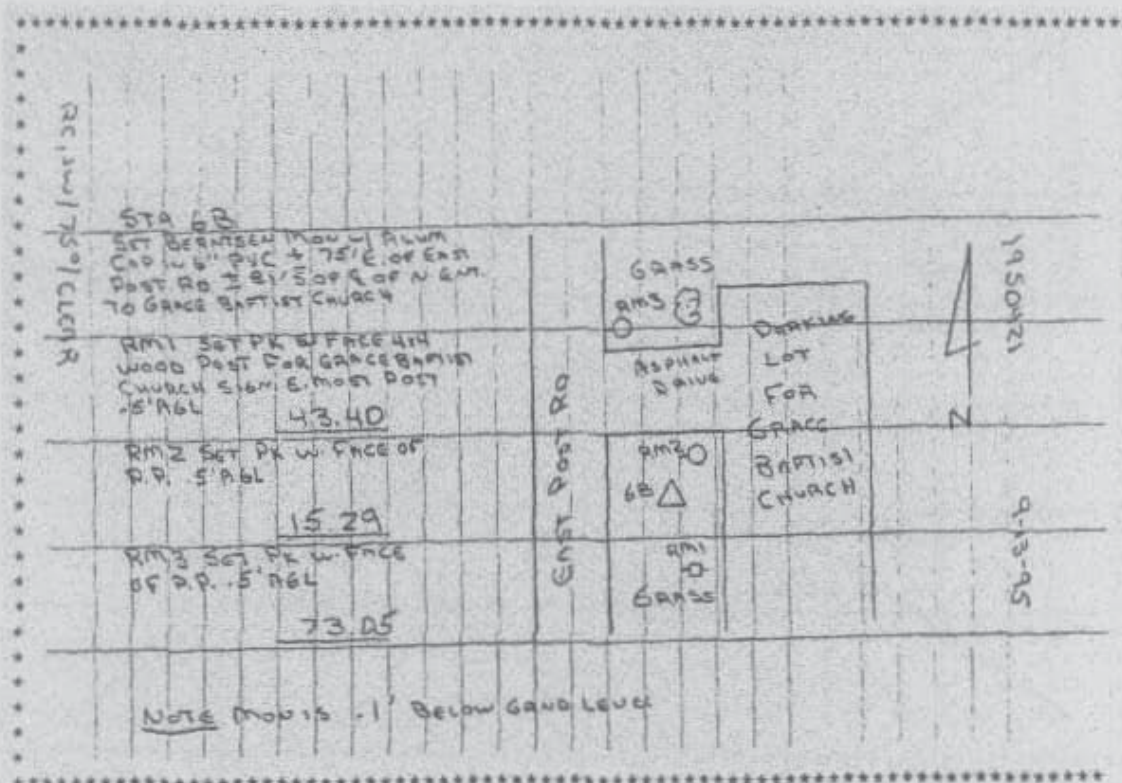 RC, JW / 75°/ CLEAR
STA 6B
SET BERNTSEN MON W/ ALUM
CAP IN 6" PVC ± 75' E. OF EAST
POST RD ± 81' S OF ℄ OF N ENT.
TO GRACE BAPTIST CHURCH
RM1 SET PK FACE 4x4
WOOD POST FOR GRACE BAPTIST
CHURCH SIGN E. MOST POST
.5' AGL
43.40
RM2 SET PK W. FACE OF
P.P. .5' AGL
15.29
RM3 SET PK W. FACE
OF P.P. .5' AGL
73.05
NOTE MON IS .1' BELOW GRND LEVEL
EAST POST RD
GRASS
RM3
ASPHALT
DRIVE
RM2
6B
RM1
GRASS
PARKING
LOT
FOR
GRACE
BAPTIST
CHURCH
N
1950421
9-13-95